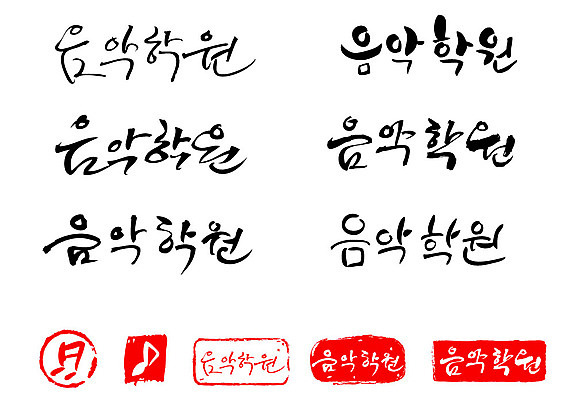 음악학원 음악학원
음악학원 음악학원
음악학원 음악학원
음악학원 음악학원 음악학원